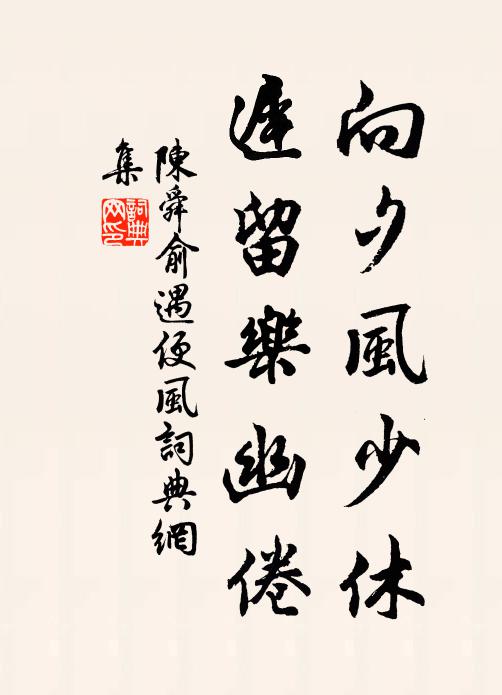 向夕風少休
遲留樂幽倦
陳舜俞遇便風詞典網
集
詞典
网印